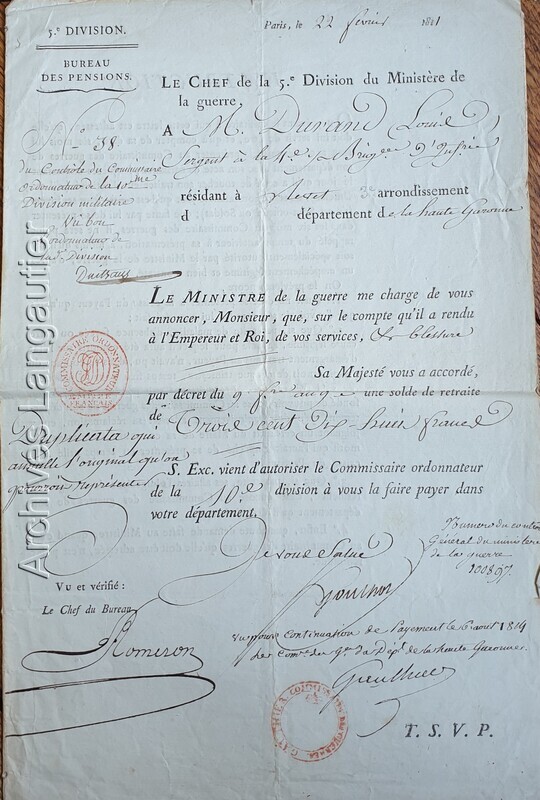 5.e DIVISION.
BUREAU
DES PENSIONS.
Paris, le 22 février 1811
LE CHEF de la 5.e Division du Ministère de
la guerre,
A M. Durand Louis
Sergent à la 4.e 1/2 Brig.de D'Inf.rie
résidant à 3.e arrondissement
d département de la haute Garonne
N.° 38
du Contrôle du Commissaire
Ordonnateur de la 10.me
Division militaire
Vu bon
ordonnateur de
lad. Division
LE MINISTRE de la guerre me charge de vous
annoncer, Monsieur, que, sur le compte qu'il a rendu
à l'Empereur et Roi, de vos services, & blessure
Sa Majesté vous a accordé,
par décret du 9 une solde de retraite
de Trois cent dix-huit francs
Duplicata qui
annulle l'original qu'on
pourroit représenter
S. Exc. vient d'autoriser le Commissaire ordonnateur
de la 10.e division à vous la faire payer dans
votre département.
Je vous Salue
Numero du controle
Général du ministere
de la guerre
100897.
VU et vérifié :
Le Chef du Bureau
Romeron
Vu pour continuation de Payement le 6 aout 1814
de la haute Garonne
T. S. V. P.
COMMISSAIRE ORDONNATEUR
Archives Langautier